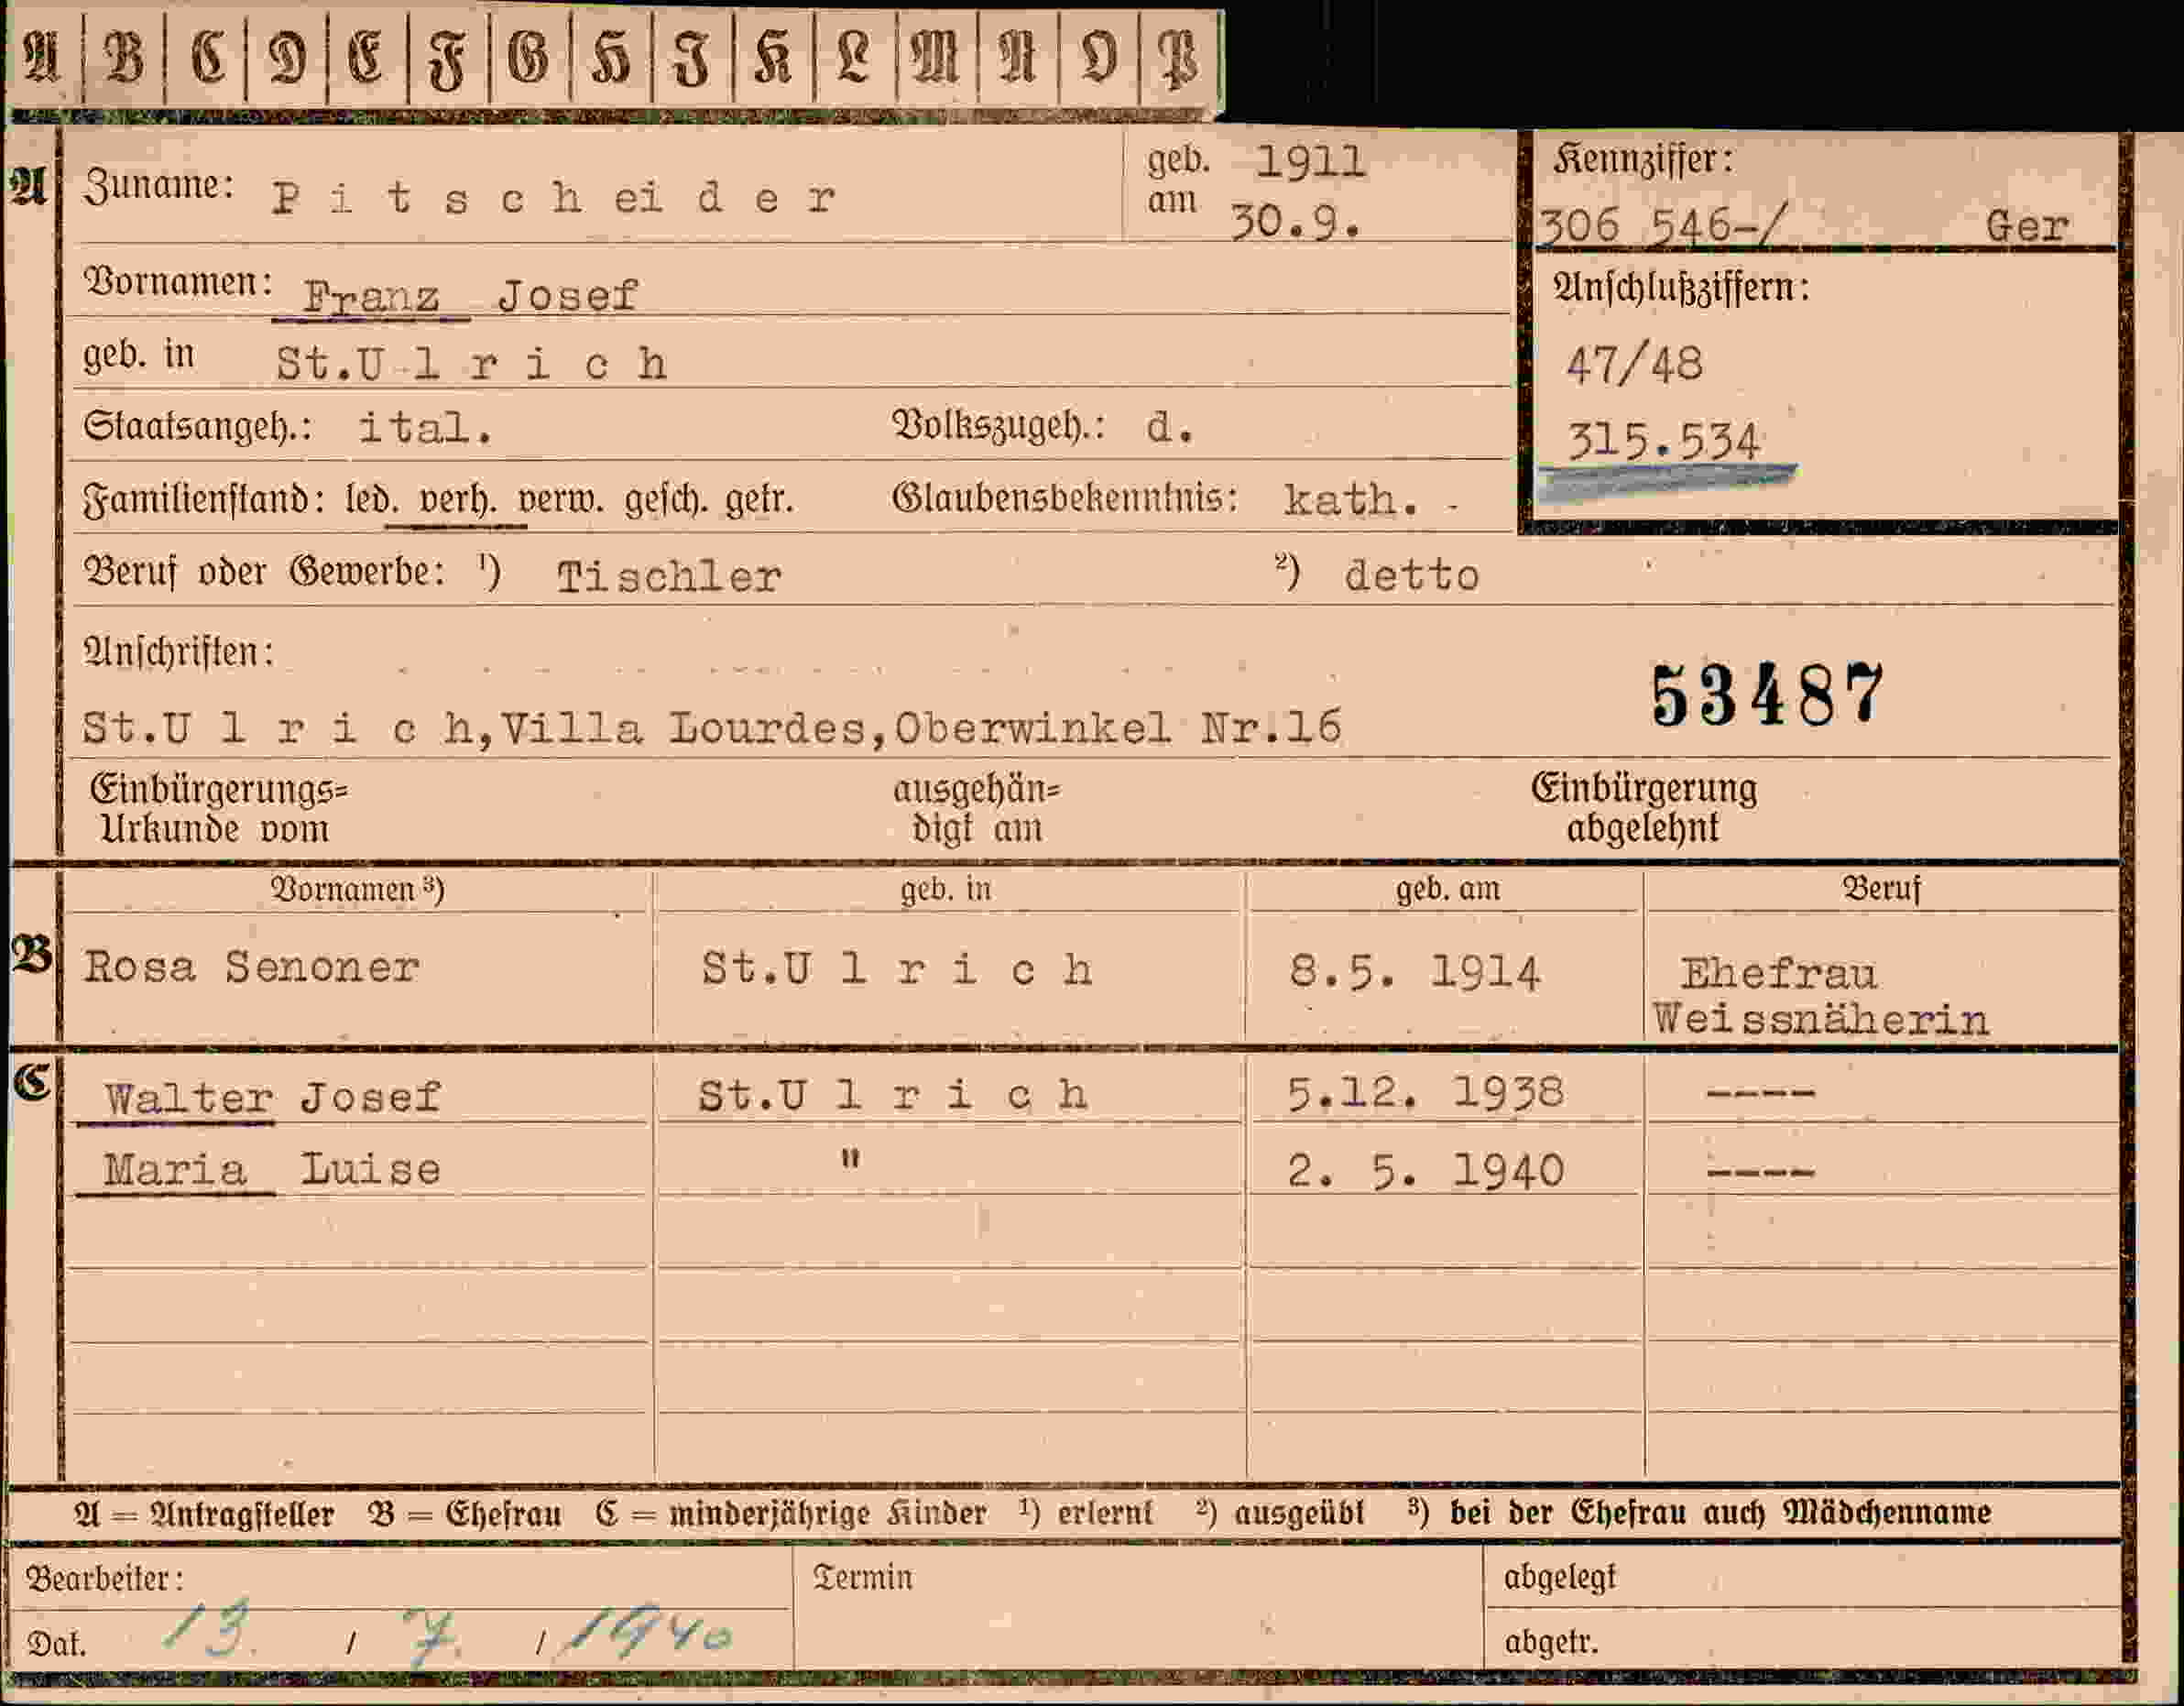 A B C D E F G H I K L M N O P
A Zuname: P i t s c h ei d e r geb. am 1911 30.9. Kennziffer:
306 546-/ Ger
Vornamen: Franz Josef Anschlußziffern:
geb. in St.U l r i c h 47/48
Staatsangeh.: ital. Volkszugeh.: d. 315.534
Familienstand: led. verh. verw. gesch. getr. Glaubensbekenntnis: kath. -
Beruf oder Gewerbe: ¹) Tischler ²) detto
Anschriften:
53487
St.U l r i c h,Villa Lourdes,Oberwinkel Nr.16
Einbürgerungs= ausgehän= Einbürgerung
Urkunde vom digt am abgelehnt
Vornamen ³) geb. in geb. am Beruf
B Rosa Senoner St.U l r i c h 8.5. 1914 Ehefrau
Weissnäherin
C Walter Josef St.U l r i c h 5.12. 1938 ----
Maria Luise " 2. 5. 1940 ----
A = Antragsteller B = Ehefrau C = minderjährige Kinder ¹) erlernt ²) ausgeübt ³) bei der Ehefrau auch Mädchenname
Bearbeiter: Termin abgelegt
Dat. 13. / 7. / 1940 abgetr.